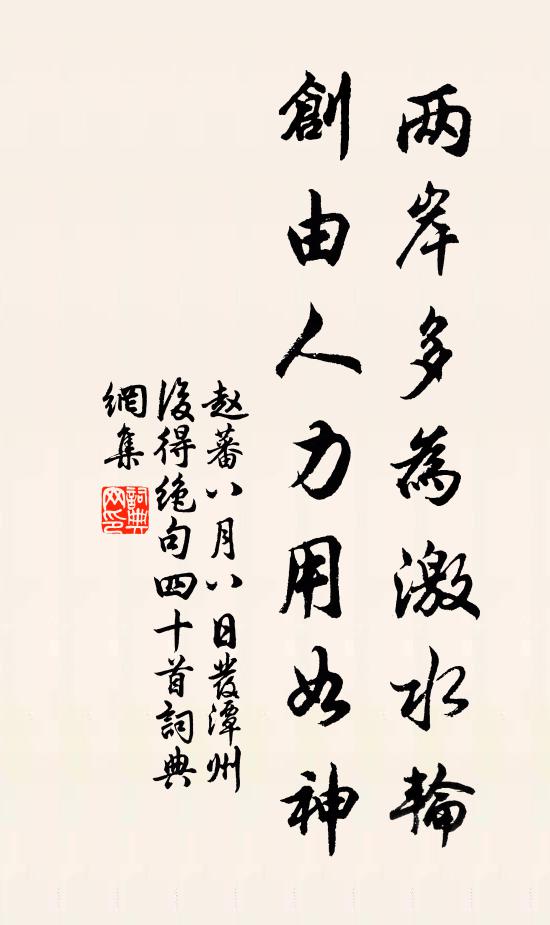 两岸多為激水輪
創由人力用如神
赵蕃八月八日發潭州
後得绝句四十首詞典
網集
詞典
网印